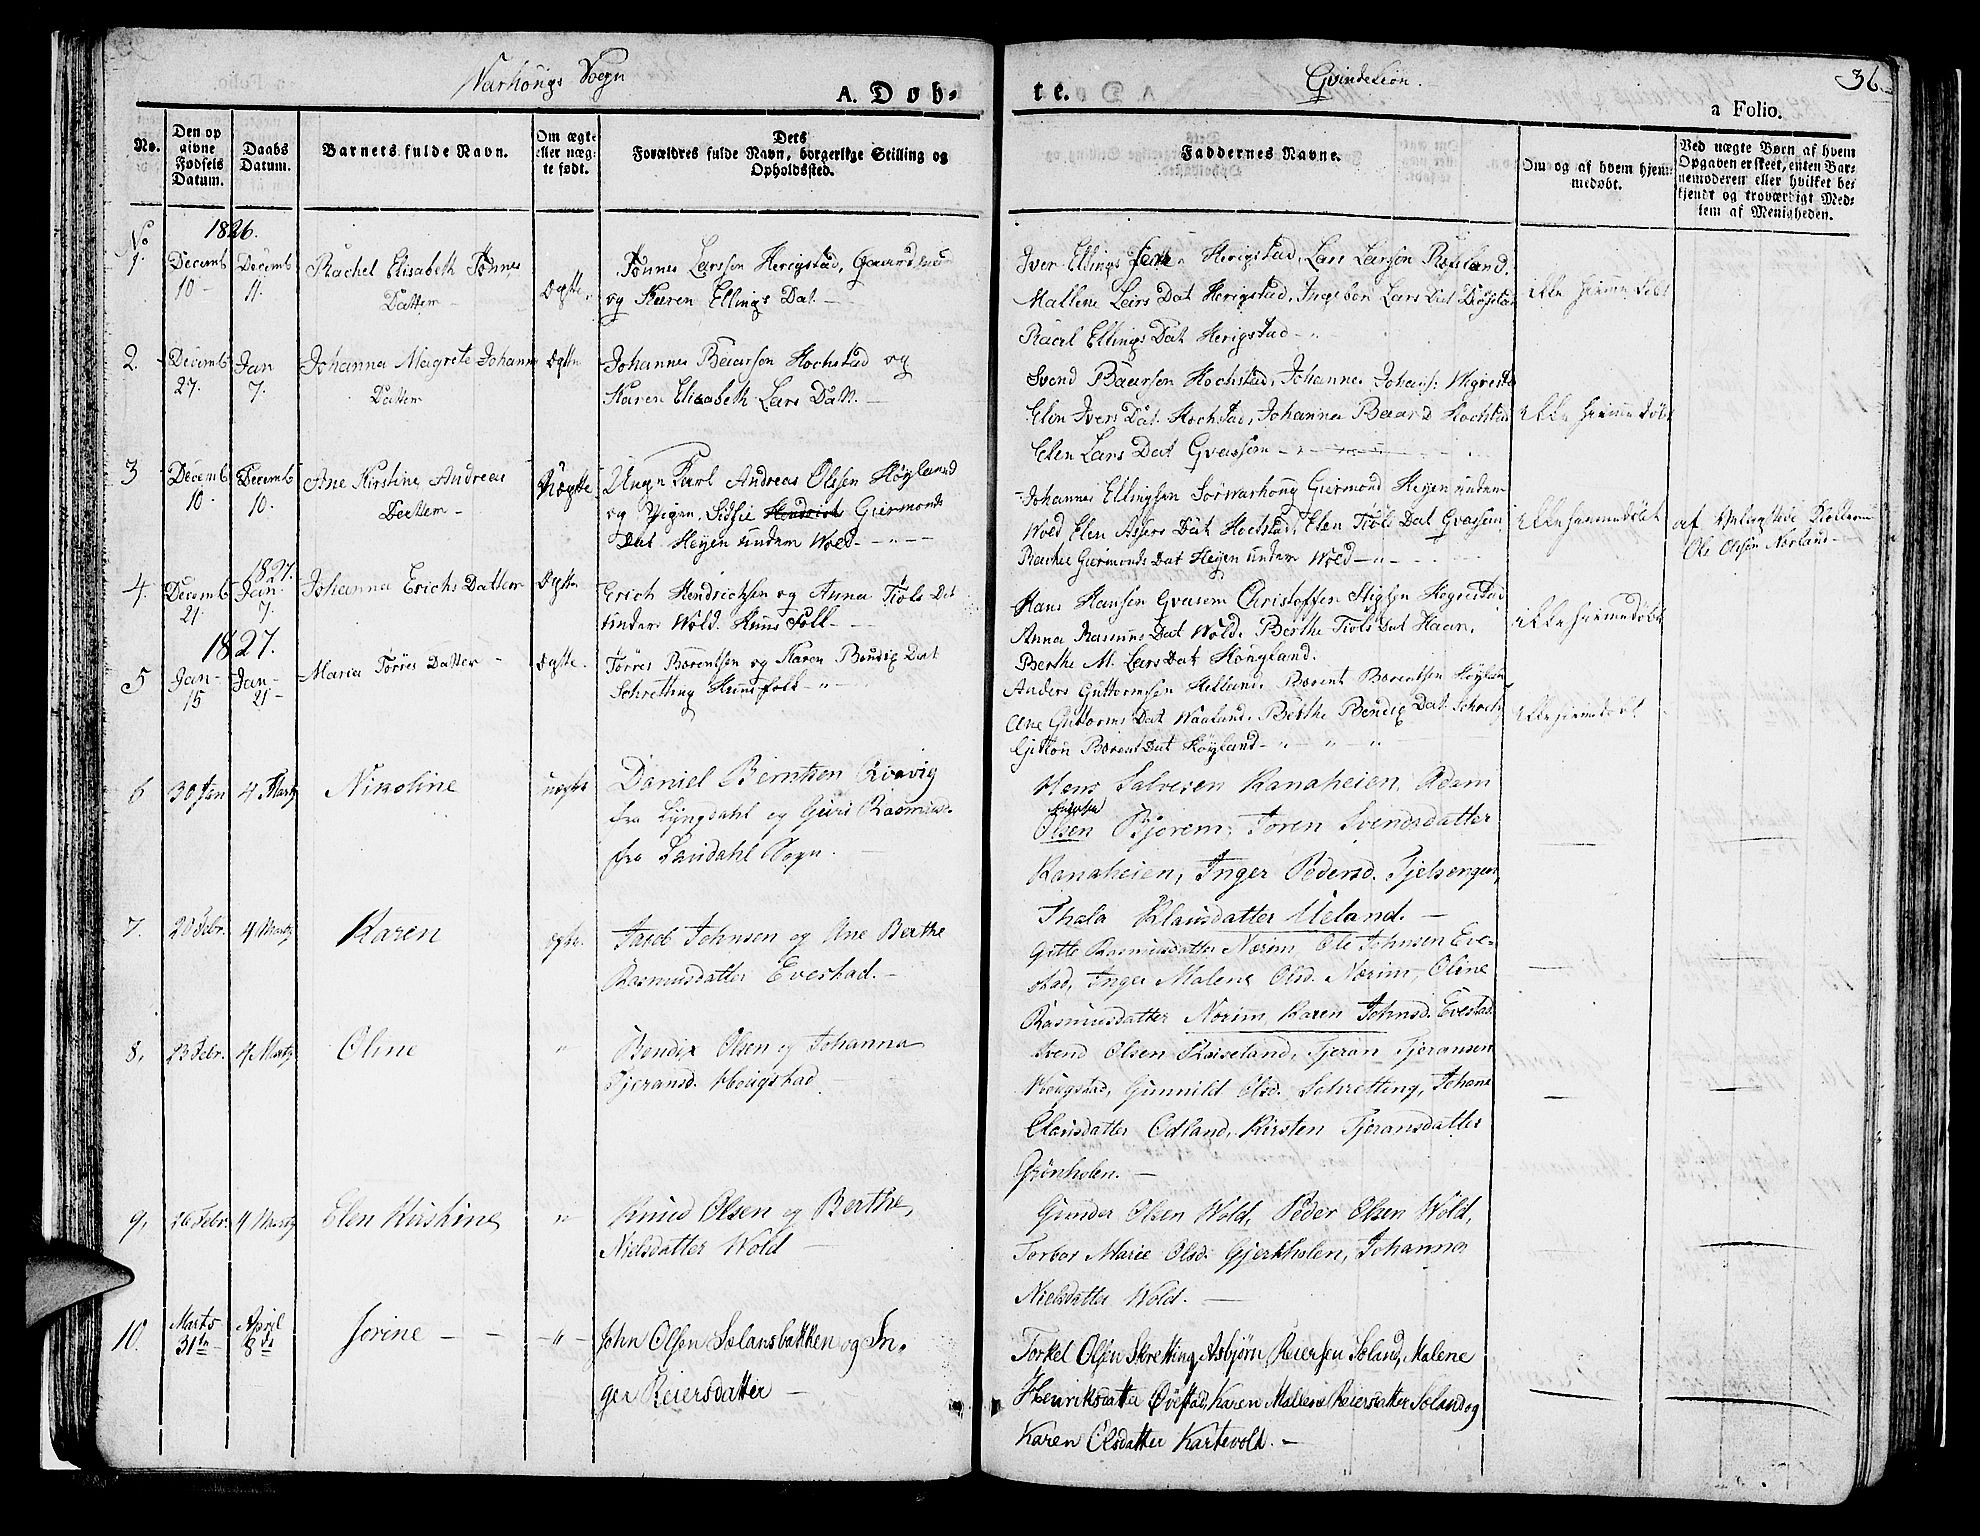 Varhougs Sogn
A. Døb-
te.
Qvindekiøn.
36
a Folio.
No.
Den op
givne
Fødsels
Datum.
Daabs
Datum.
Barnets fulde Navn.
Om ægte
eller uæg-
te født.
Dets
Forældres fulde Navn, borgerlige Stilling og
Opholdssted.
Faddernes Navne.
Om og af hvem hjem-
medøbt.
Ved uægte Børn af hvem
Opgaven er skeet, enten Bar-
nemoderen eller hvilket be-
kjendt og troværdigt Med-
lem af Menigheden.
No 1826.
1. Decemb 10 Decemb 11. Rachel Elisabeth Tønnes
Datter
Ægte
Tønnes Larsson Herigstad, Gaardmand
og Karen Ellings Dat
Iver Ellings Herigstad, Lars Larson
Mallene Lars Dat Herigstad, Ingebor Lars Dat
Rael Ellings Dat Herigstad
ikke hiemmedøbt
2. Decemb 27. Jan 7. Johanna Magrete Johanne
Datter
ægte
Johannes Baarson Hochstad og
Karen Elisabeth Lars Datt.
Svend Baarson Hochstad, Johannes Johans:
Elen Ivers Dat Hochstad, Johanna Baard Hochstad
Elen Lars Dat Gvassem
ikke hiemmedøbt
3 Decemb 10 Decemb 10. Ane Kirstine Andreas
Datter
Uægte
Ungn Karl Andreas Olsen Høyland
og Pigen Sidsie Giermonds
Dat Heyen under Wold
Johannes Ellingsen Sørvarhoug Giermond Heyen under
Wold Elen Assers Dat Hochstad, Elen Tiøls Dat Gvassem,
Rachel Giermonds Dat Heyen under Wold
ikke hiemmedøbt
af
Ole Olsen Norland
4. Decemb 21 1827. Jan. 7. Johanna Erichs Datter
Ægte
Erich Hendrichsen og Anna Tiøls Dat
under Wold. Huus Folk
Hans Hansen Gvasem Christoffer Stigsen Hegrestad
Anna Rasmus Dat Wold. Berthe Tiøls Dat Haar,
Berthe M. Lars Dat Høugland.
ikke hiemmedøbt
1827.
5 Jan 15 Jan 21 Maria Tørres Datter
ægte
Tørres Barentsen og Karen Bendix Dat
Schretting Huusfolk
Anders Guttormsen Helland, Barent Barentsen Høyland
Ane Guttorms Dat Waaland, Berthe Bendix Dat
Barent Dat Høyland
ikke hiemmedøbt
6 30 Jan 4 Martz Nikoline uægte
Daniel Berntsen Qvavig
fra Lyngdahl og Guri Rasmusd.
fra Sogn.
Hans Salvesen Ranaheien, Adam
Olsen Bjorem, Toren Svendsdatter
Ranaheien, Inger Pedersd. Tjelsengen,
Thala Klausdatter Ueland.
7. 20 Febr. 4 Martz Karen ægte.
Jacob Johnsen og Ane Berthe
Rasmusdatter Evestad.
Gitte Rasmusdatter Nærim Ole Johnsen Eve-
stad, Inger Malene Olsd. Nærim, Oline
Rasmusdatter Nærim, Karen Johnsd. Evestad
8, 23 Febr. 4 Martz Oline "
Bendix Olsen og Johanna
Tjeransd. Hougstad
Svend Olsen Roiseland, Tjeran Tjeransen
Hougstad, Gunnild Olsd. Schretting, Johane
Clausdatter Odland, Kirsten Tjeransdatter
Grönholen.
9, 26 Febr. 4 Martz Elen Kirstine "
Knud Olsen og Berthe
Nielsdatter Wold
Gunder Olsen Wold, Peder Olsen Wold,
Torbor Marie Olsd. Gjerkholen, Johanna
Nielsdatter Wold.
10. Marts 31te April 8de Jorine "
John Olsen Solansbakken og In-
ger Reiersdatter
Torkel Olsen Skretting, Asbjørn Reiersen Soland, Malene
Henriksdatter Øvestad, Karen Mallene Reiersdatter Soland og
Karen Olsdatter Kartevolt.